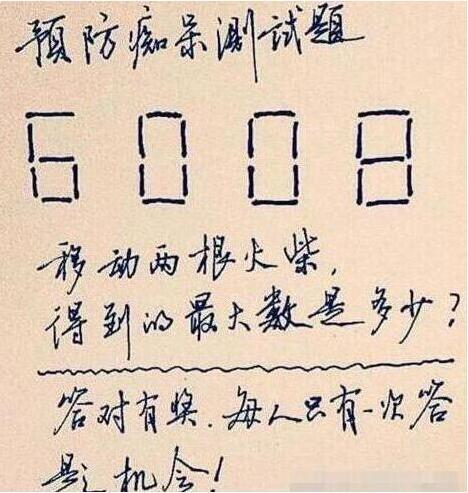 预防痴呆测试题
6008
移动两根火柴,
得到的最大数是多少?
答对有奖.每人只有一次答
题机会!